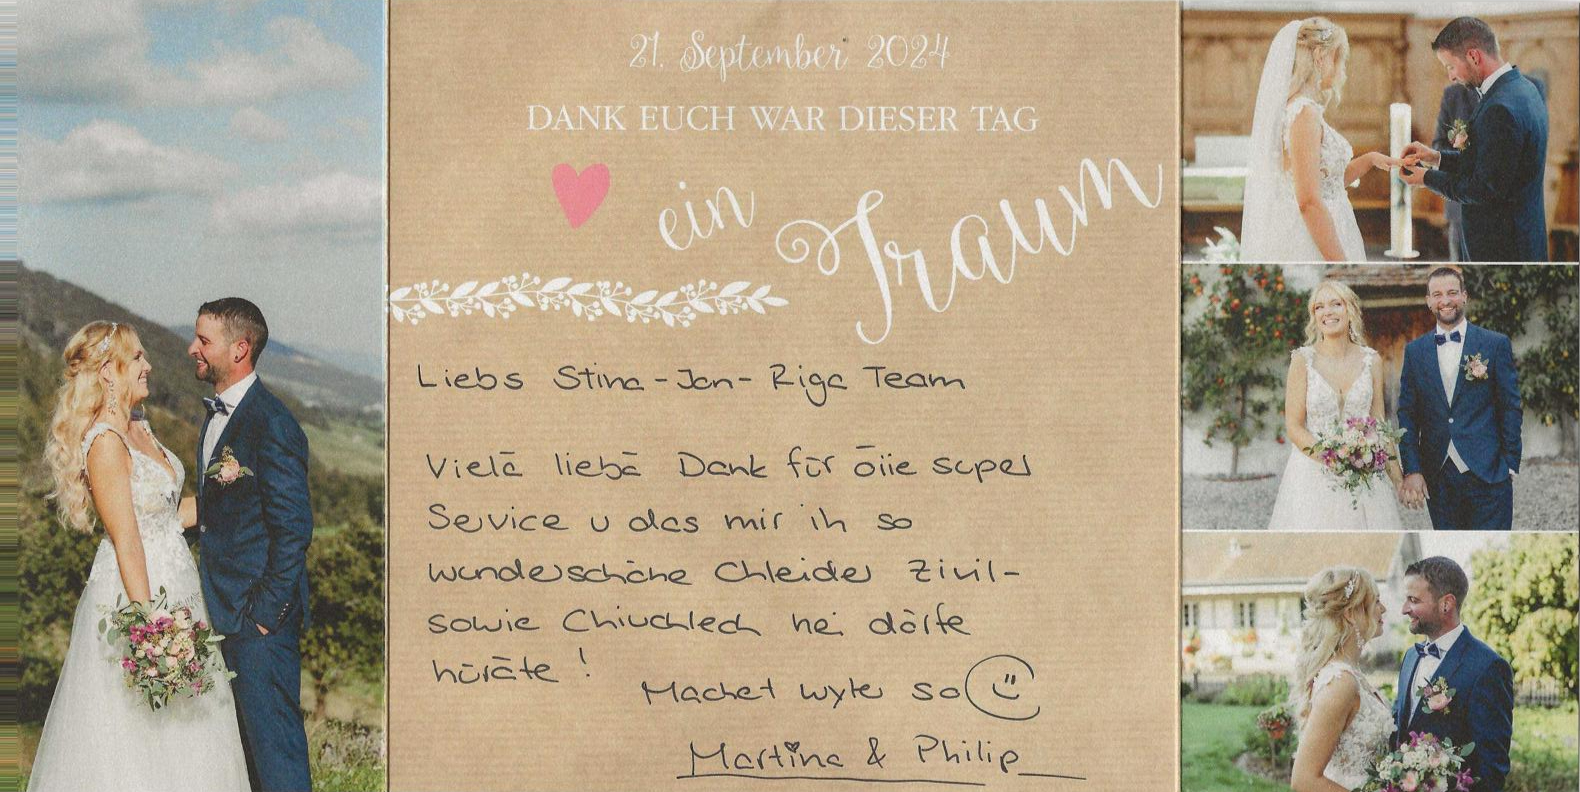 21. September 2024
DANK EUCH WAR DIESER TAG
ein Traum
Liebs Stina-Jan-Riga Team
Vielä liebä Dank für öiie super
Service u das mir ih so
wunderschöne Chleider Zivil-
sowie Chiuchlech hei dörfe
hürate!
Machet wyter so
Martina & Philip